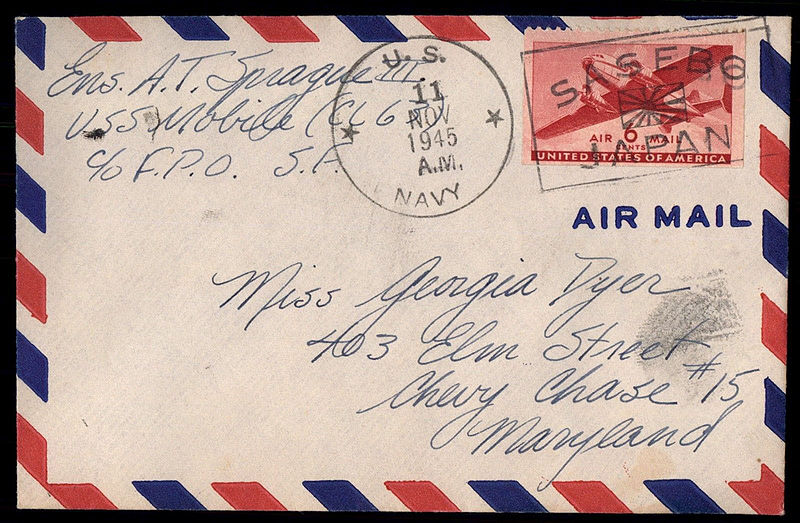 Ens. A.T. Sprague III.
USS Mobile (CL 63)
c/o F.P.O. S.F.
U.S.
11
NOV
1945
A.M.
NAVY
SASEBO
JAPAN
AIR 6 MAIL
CENTS
UNITED STATES OF AMERICA
AIR MAIL
Miss Georgia Dyer
403 Elm Street
Chevy Chase #15
Maryland